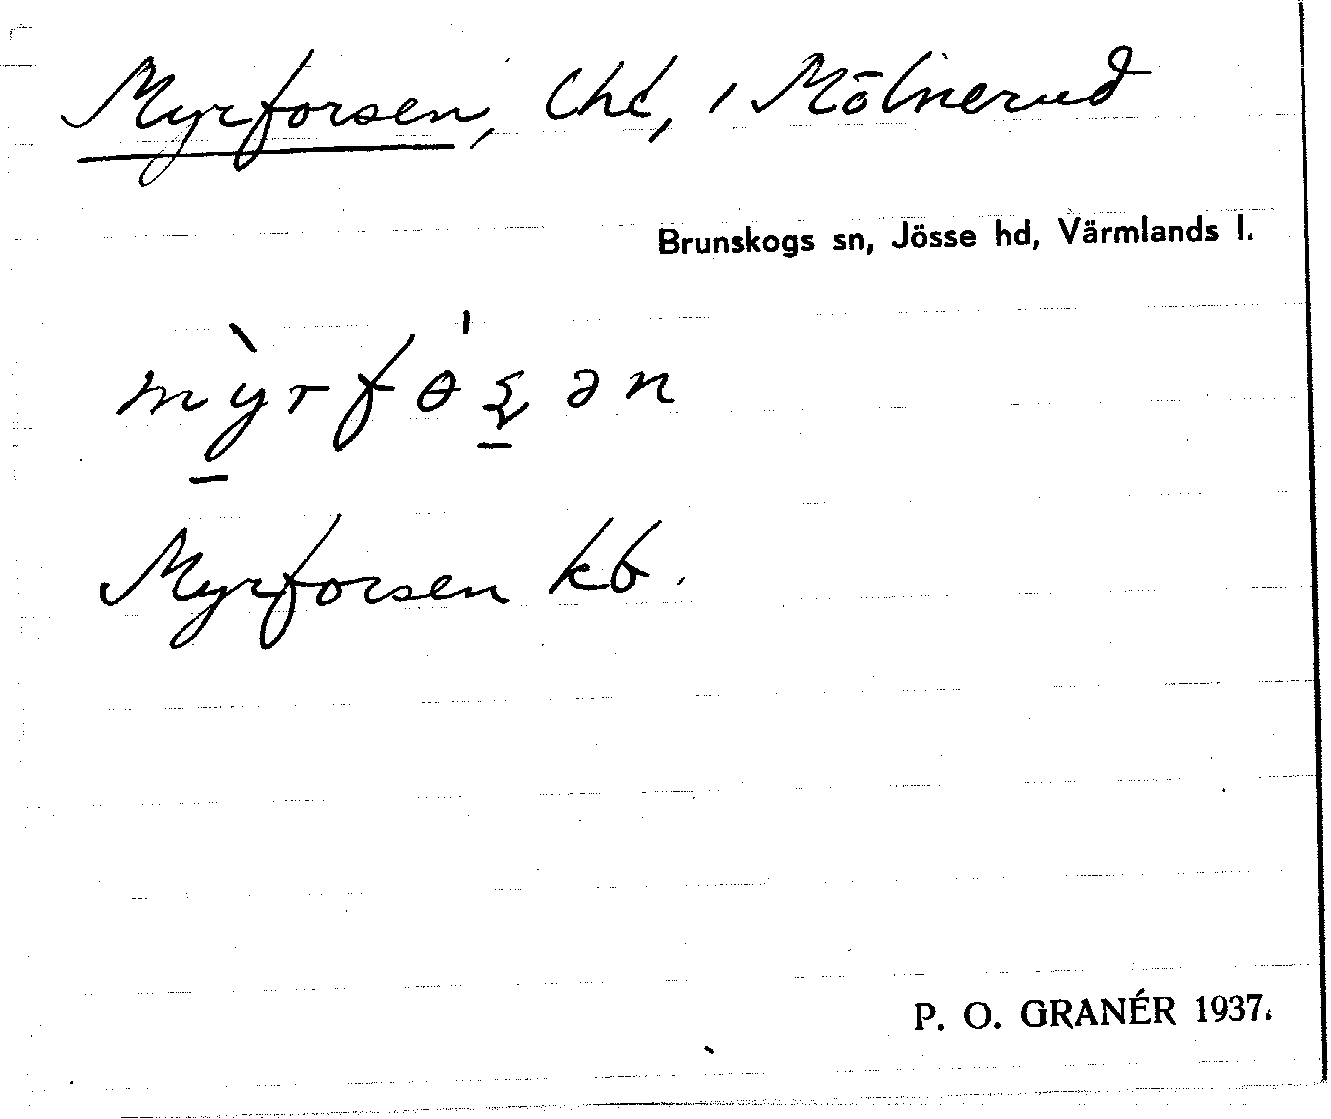 Myrforsen, lht, i Mölnerud
Brunskogs sn, Jösse hd, Värmlands l.
Myrforsen kb.
P. O. GRANÉR 1937.